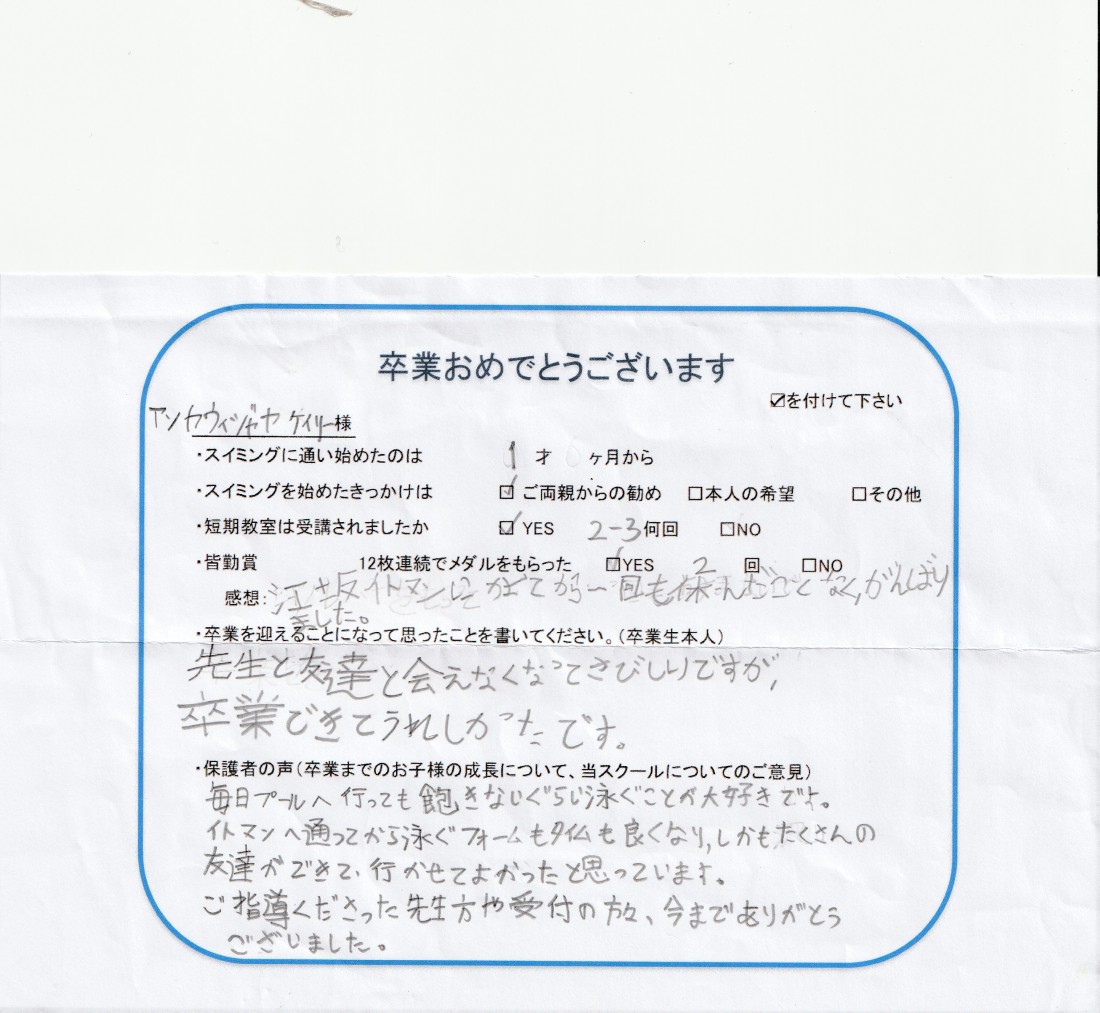 卒業おめでとうございます
☑を付けて下さい
アンカウィジャヤ ケイリー様
・スイミングに通い始めたのは 1 才 0 ヶ月から
・スイミングを始めたきっかけは ☑ ご両親からの勧め □本人の希望 □その他
・短期教室は受講されましたか ☑ YES 2-3何回 □NO
・皆勤賞 12枚連続でメダルをもらった ☑YES 2 回 □NO
感想:江坂イトマンに から一回も休んだことなく,がんばり
ました。
・卒業を迎えることになって思ったことを書いてください。(卒業生本人)
先生と友達と会えなくなってさびしいですが,
卒業できてうれしかったです。
・保護者の声(卒業までのお子様の成長について、当スクールについてのご意見)
毎日プールへ行っても飽きないぐらい泳ぐことが大好きです。
イトマンへ通ってから泳ぐフォームもタイムも良くなり,しかもたくさんの
友達ができて、行かせてよかったと思っています。
ご指導くださった先生方や受付の方々、今までありがとう
ございました。